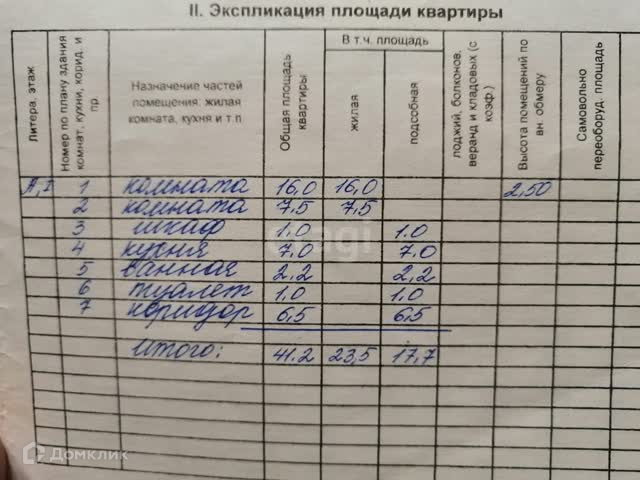 II. Экспликация площади квартиры
Литера. этаж
Номер по плану здания комнат, кухни, корид. и пр.
Назначение частей помещения: жилая комната, кухня и т.п
Общая площадь квартиры
В т.ч. площадь
жилая
подсобная
лоджий, болконов, веранд и кладовых (с коэф.)
Высота помещений по вн. обмеру
Самовольно переоборуд. площадь
А, I 1 комната 16,0 16,0 2,50
2 комната 7,5 7,5
3 шкаф 1.0 1.0
4 кухня 7.0 7.0
5 ванная 2,2 2,2
6 туалет 1.0 1,0
7 коридор 6,5 6,5
Итого: 41.2 23,5 17,7
Домклик